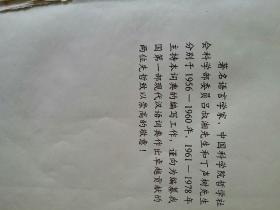 著名语言学家、中国科学院哲学社
会科学部委员吕叔湘先生和丁声树先生
分别于1956—1960年、1961—1978年
主持本词典的编写工作，谨向为编纂我
国第一部现代汉语词典作出卓越贡献的
两位先哲致以崇高的敬意！